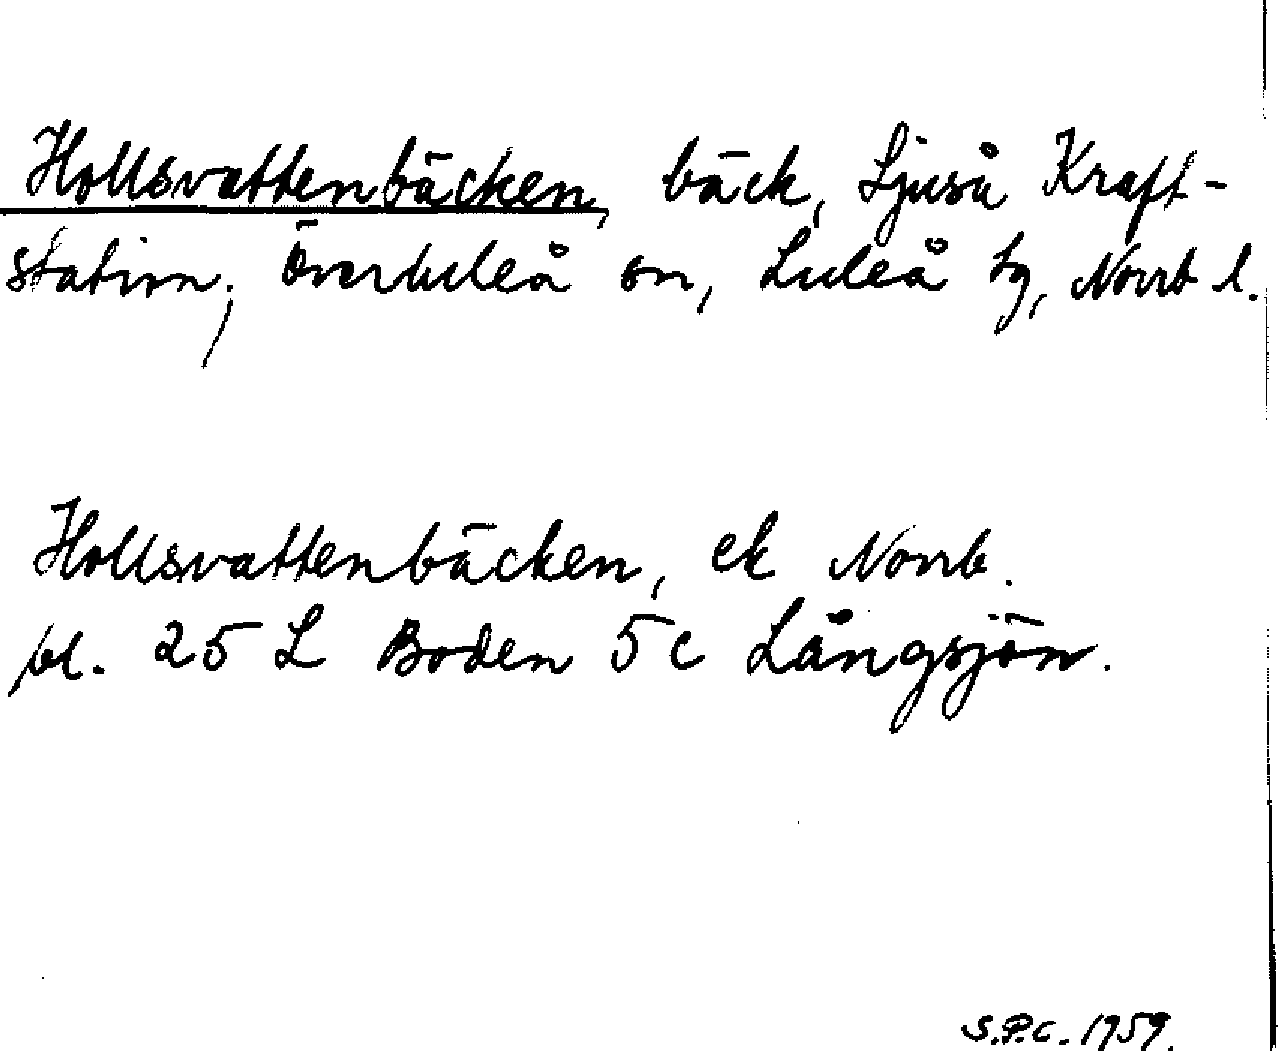 Hollsvattenbäcken, bäck, Ljuså Kraft-
station, Överluleå sn, Luleå tg, Norrb l.
Hollsvattenbäcken, ek Norrb.
bl. 25 L Boden 5 c Långsjön.
S.P.C. 1959.